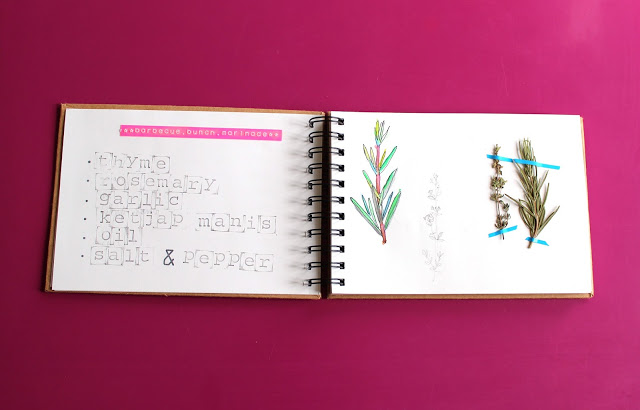 **barbecue.bunch.marinade**
thyme
rosemary
garlic
ketjap manis
oil
salt & pepper